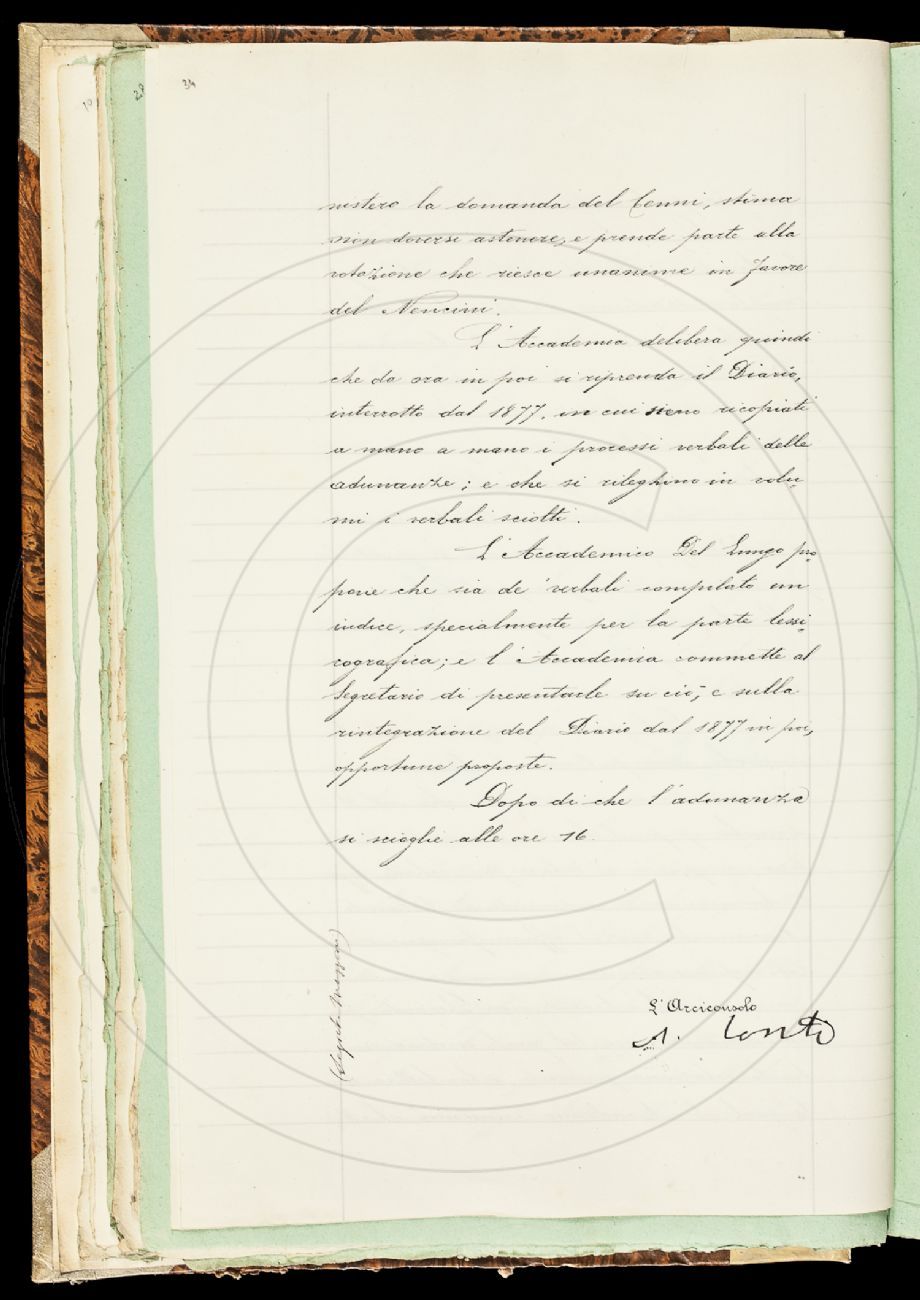 34
nistero la domanda del Cenni, stima
non doversi astenere, e prende parte alla
votazione che riesce unanime in favore
del Nencini.
L'Accademia delibera quindi
che da ora in poi si riprenda il Diario,
interrotto dal 1877, in cui sieno ricopiati
a mano a mano i processi verbali delle
adunanze; e che si rileghino in volu-
mi i verbali sciolti.
L'Accademico Del Lungo pro-
pone che sia de' verbali compilato un
indice, specialmente per la parte lessi-
cografica; e l'Accademia commette al
Segretario di presentarle su ciò, e sulla
rintegrazione del Diario dal 1877 in poi,
opportune proposte.
Dopo di che l'adunanza
si scioglie alle ore 16.
L'Arciconsolo
A. Conti